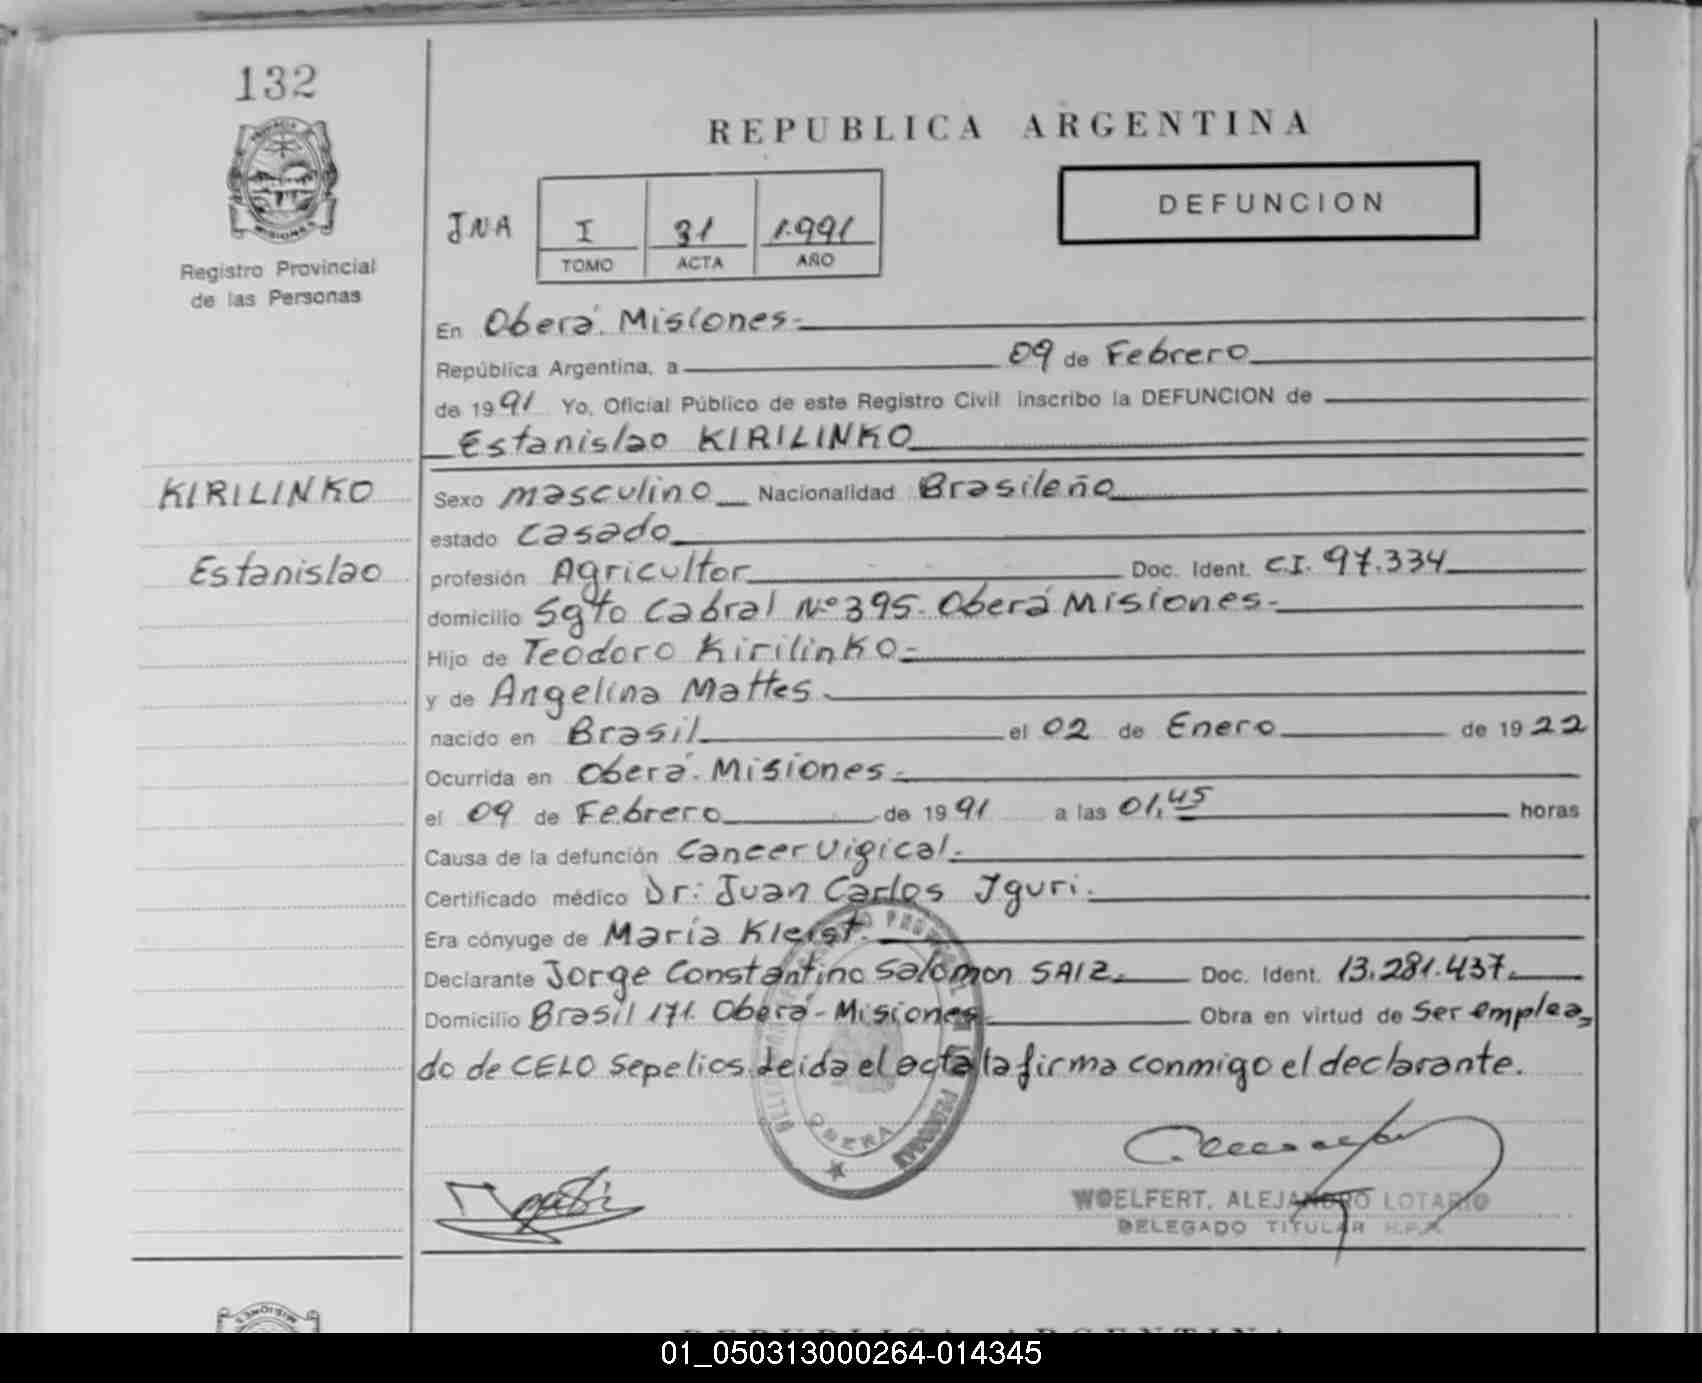 132
PROVINCIA
MISIONES
Registro Provincial
de las Personas
REPUBLICA ARGENTINA
DEFUNCION
JNA I 31 1.991
TOMO ACTA AÑO
En Oberá. Misiones.-
República Argentina, a 09 de Febrero
de 1991 Yo, Oficial Público de este Registro Civil inscribo la DEFUNCION de
Estanislao KIRILINKO
KIRILINKO
Estanislao
Sexo masculino Nacionalidad Brasileño
estado casado
profesión Agricultor Doc. Ident. C.I. 97.334
domicilio Sgto Cabral Nº 395. Oberá Misiones.-
Hijo de Teodoro Kirilinko.-
y de Angelina Mattes.
nacido en Brasil el 02 de Enero de 1922
Ocurrida en Oberá. Misiones.-
el 09 de Febrero de 1991 a las 01,45 horas
Causa de la defunción Cancer Vigical.-
Certificado médico Dr: Juan Carlos Iguri.
Era cónyuge de María Kleist.
Declarante Jorge Constantino Salomon SAIZ. Doc. Ident. 13.281.437.
Domicilio Brasil 171. Oberá-Misiones Obra en virtud de Ser emplea,
do de CELO Sepelios. Leida el acta la firma conmigo el declarante.
OBERA
WOELFERT, ALEJANDRO LOTARIO
DELEGADO TITULAR R.P.P.
MISIONES
REPUBLICA ARGENTINA
01_050313000264-014345